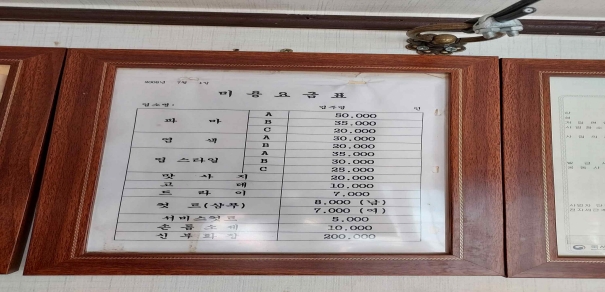 미용요금표
업소명:
파마 A 50,000
B 35,000
C 20,000
염색 A 30,000
B 20,000
업스타일 A 35,000
B 30,000
C 25,000
맛사지 20,000
고데 10,000
드라이 7,000
컷트(샴푸) 8,000 (남)
7,000 (여)
서비스컷트 5,000
손톱소제 10,000
신부화장 200,000